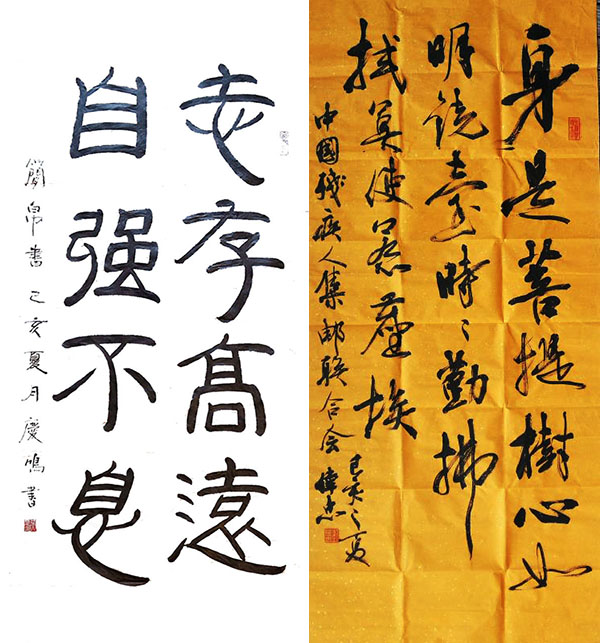 志存高遠
自强不息
簡帛書 己亥夏月慶鳴書
身是菩提樹心如
明镜臺時〻勤拂
拭莫使惹塵埃
中國残疾人集邮联合会
己亥之夏